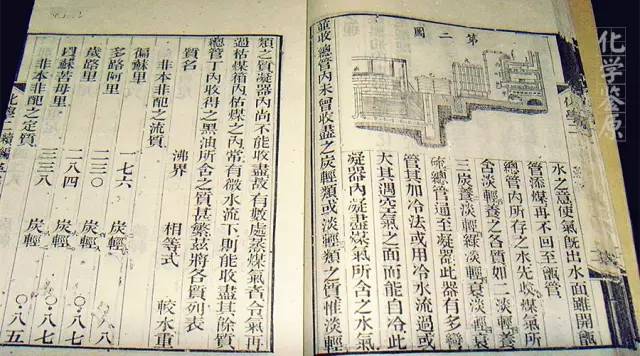 化学鉴原
第二圖
水之意使氣旣出水面雖開甑
管添煤再不回至甑管
總管內所存之水先收煤氣所
含淡輕養之各質如二淡輕養
三炭養淡輕綠淡輕衰淡輕衰
硫總管通至凝器此器有多彎
管其加冷法或用冷水流過或
大其遇空氣之面而能自冷此
凝器內凝盡煤氣所含之水氣
並收總管內未曾收盡之炭輕類或淡輕類之質惟淡輕
類之質凝器內尚不能收盡故有數處蒸煤氣者令氣再
過枯煤箱內枯煤之內常有微水流下則能收盡其餘質
總管丁內收得之黑油所含之質甚繁茲將各質列表
質名 沸界 相等式 較水重
非本非酡之流質
偏蘇里 一七六 炭輕 ○・八
多路阿里 二三○ 炭輕 ○・八七
歲路里 二八四 炭輕 ○・八七
蘇苦母里 三三八 炭輕 ○・八五
非本非酡之定質